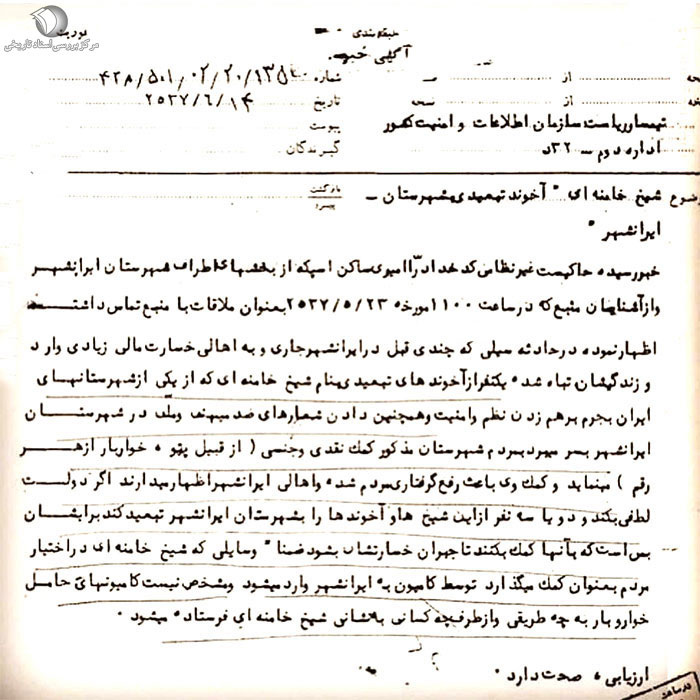 مرکز بررسی اسناد تاریخی
طبقه‌بندی
فوریت
آگهی خبر
از
شماره ۴۲۸/۵۰۱/۰۲/۲۰/۱۳۵
از
نسخه
تاریخ ۲۵۳۷/۶/۱۴
تیمسار ریاست سازمان اطلاعات و امنیت کشور
پیوست
اداره دوم - ۳۲د
گیرندگان
موضوع شیخ خامنه ای " آخوند تبعیدی بشهرستان -
بازگشت
پیرو
ایرانشهر "
خبر رسیده حاکیست غیرنظامی که خداد رّا امیری ساکن اسپکه از بخشهای اطراف شهرستان ایرانشهر
و از آشنایان منبع که در ساعت ۱۱۰۰ مورخه ۲۵۳۷/۵/۲۳ بعنوان ملاقات با منبع تماس داشت
اظهار نموده در حادثه سیلی که چندی قبل در ایرانشهر جاری و به اهالی خسارت مالی زیادی وارد
و زندگیشان تباه شده یکنفر از آخوند های تبعیدی بنام شیخ خامنه ای که از یکی از شهرستانهای
ایران بجرم برهم زدن نظم و امنیت و همچنین دادن شعارهای ضد میهنی و ملّی در شهرستان
ایرانشهر بسر میبرد بمردم شهرستان مذکور کمک نقدی و جنسی ( از قبیل پتو ، خواربار از هر
رقم ) مینماید و کمک وی باعث رفع گرفتاری مردم شده و اهالی ایرانشهر اظهار میدارند اگر دولت
لطفی بکند و دو یا سه نفر از این شیخ ها و آخوند ها را بشهرستان ایرانشهر تبعید کند برایشان
بس است که بآنها کمک بکنند تا جبران خسارتشان بشود ضمنا " وسایلی که شیخ خامنه ای در اختیار
مردم بعنوان کمک میگذارد توسط کامیون به ایرانشهر وارد میشود و مشخص نیست کامیونهای حامل
خواروبار به چه طریقی و از طرف چه کسانی به نشانی شیخ خامنه ای فرستاده میشود .
ارزیابی ، صحت دارد .